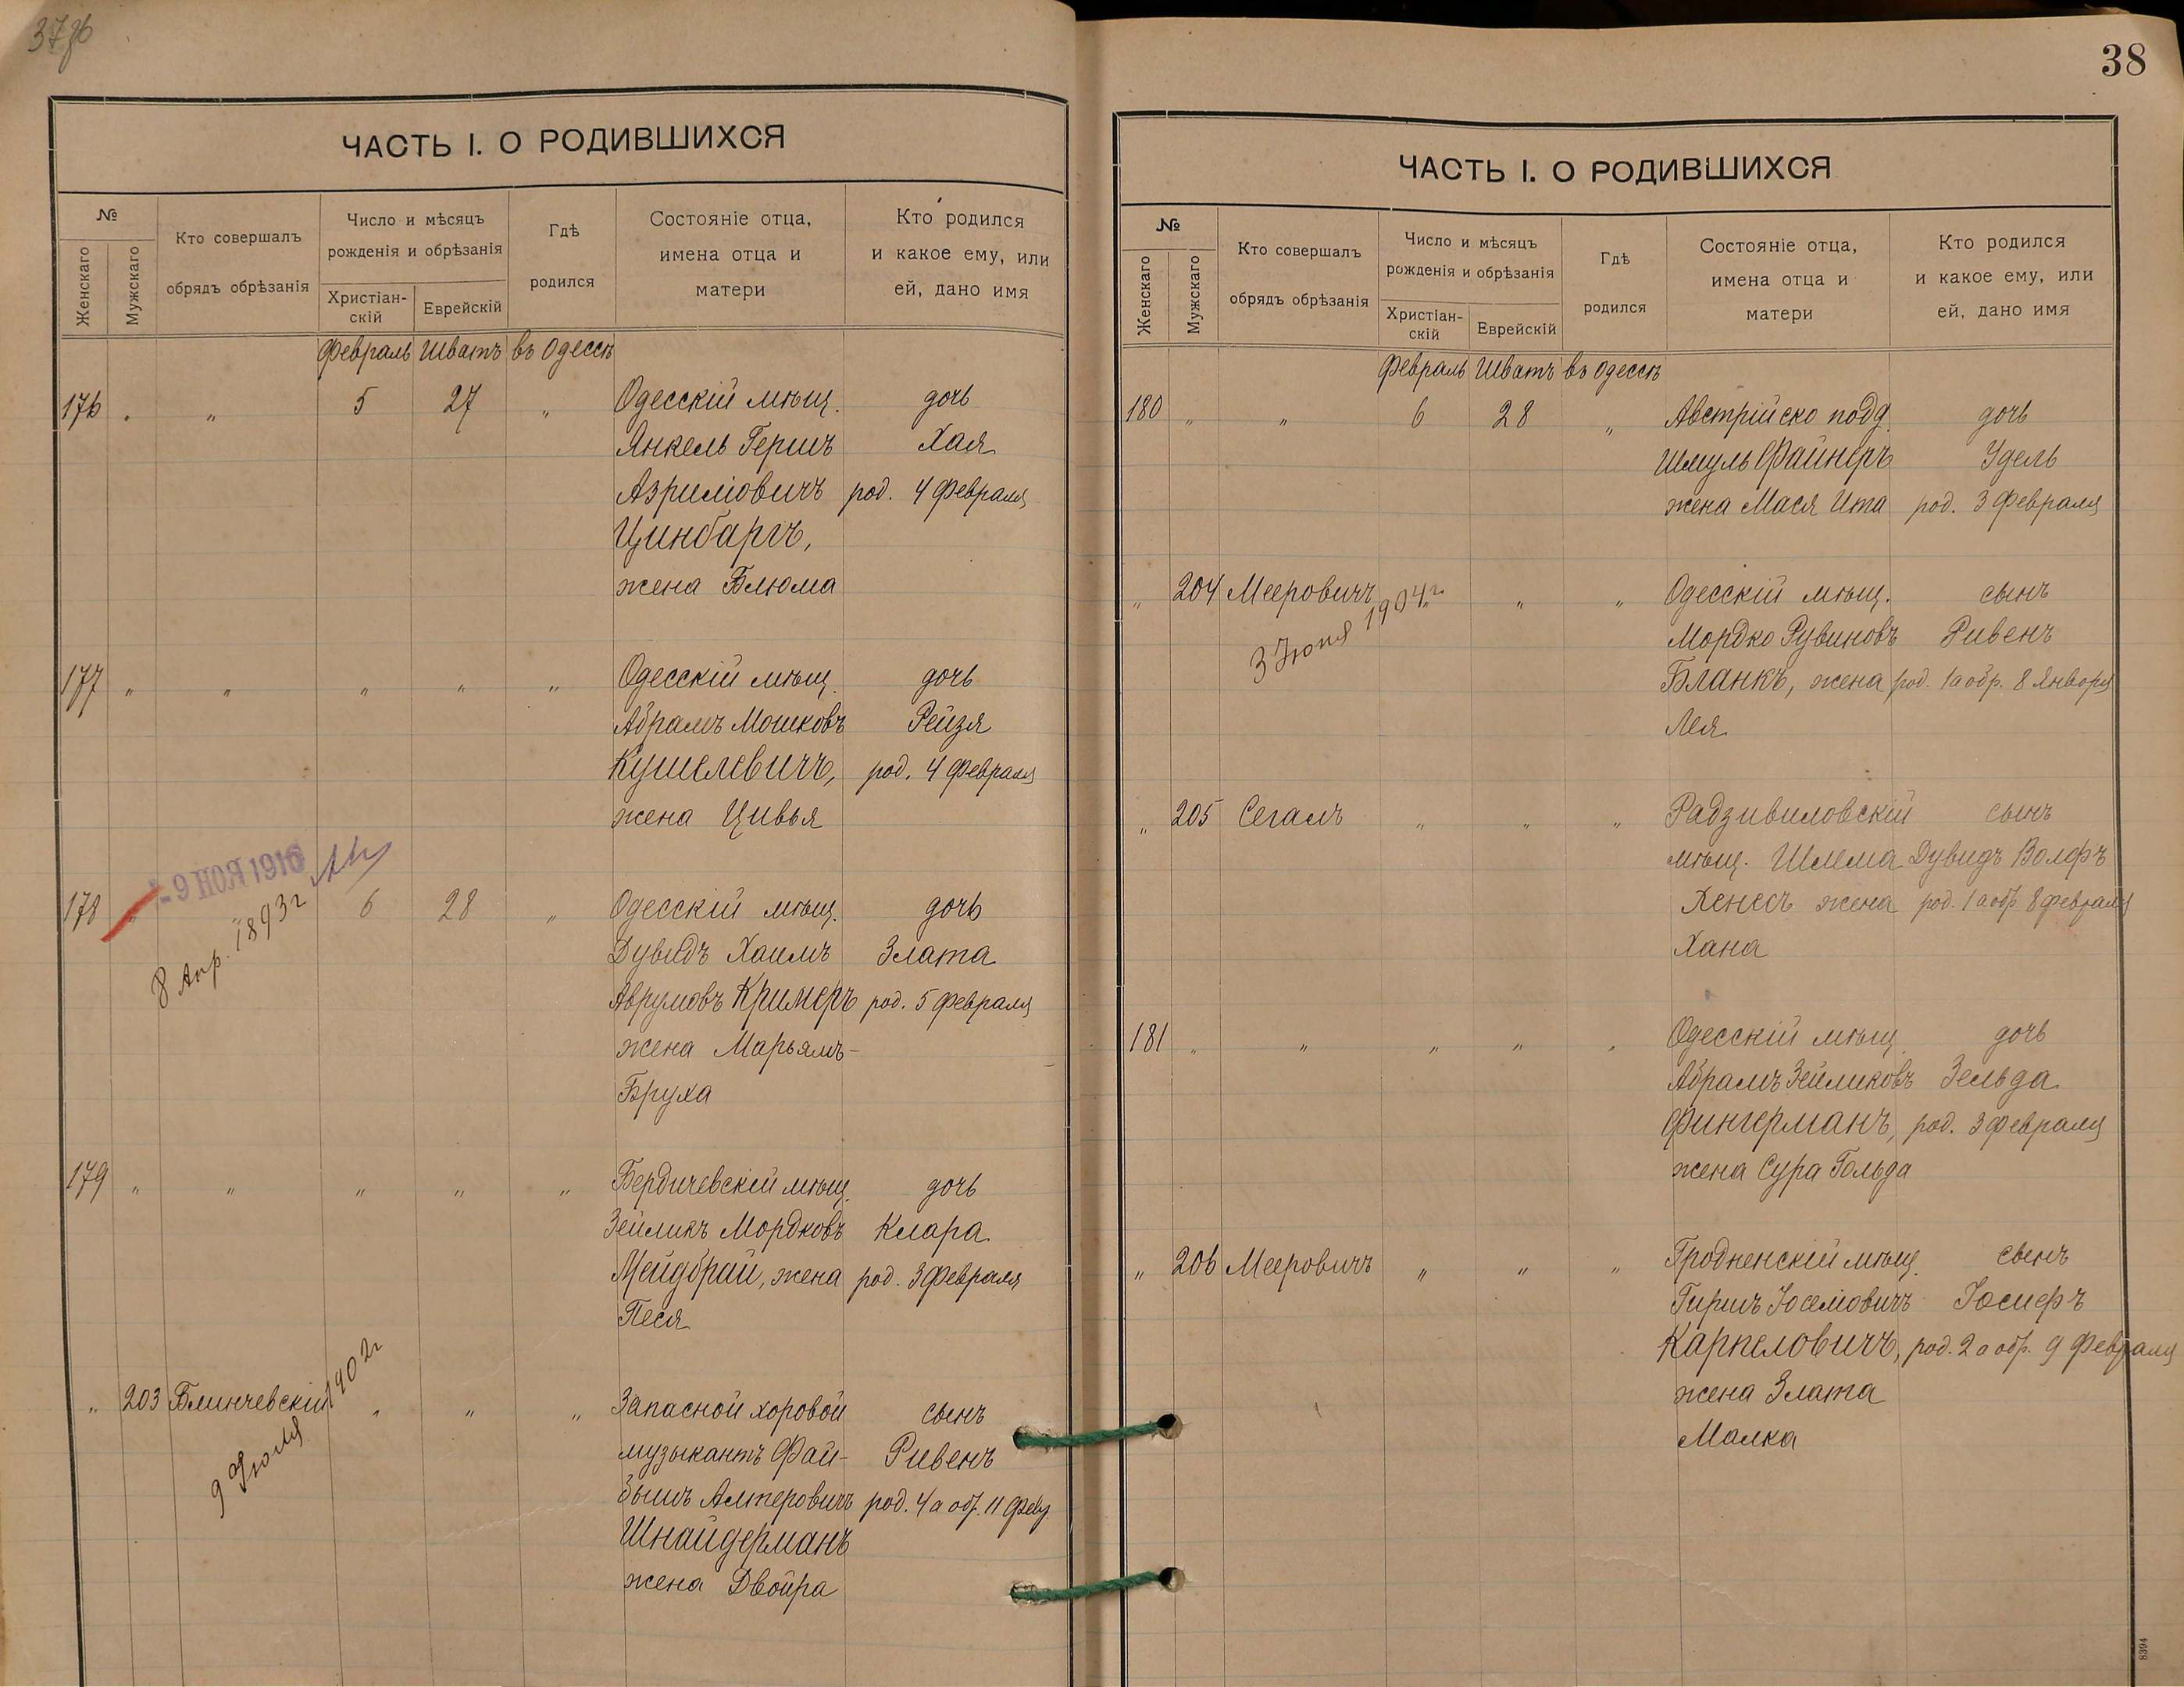 37об
ЧАСТЬ I. О РОДИВШИХСЯ
№
Женскаго
Мужскаго
Кто совершалъ
обрядъ обрѣзанія
Число и мѣсяцъ
рожденія и обрѣзанія
Христіан-
скій
Еврейскій
Гдѣ
родился
Состояніе отца,
имена отца и
матери
Кто родился
и какое ему, или
ей, дано имя
Февраль Шватъ въ Одессѣ
176 „ „ 5 27 „ Одесскій мѣщ. дочь
Янкель Гершъ Хая
Азриліовичъ род. 4 Февраля
Цинбаргъ,
жена Блюма
177 „ „ „ „ „ Одесскій мѣщ. дочь
Абрамъ Мошковъ Рейзя
Кушелевичъ, род. 4 Февраля
жена Цивья
- 9 НОЯ 1916
178 „ 6 28 „ Одесскій мѣщ. дочь
8 Апр. 1893 г
Дувидъ Хаимъ Злата
Аврумовъ Кримеръ род. 5 Февраля
жена Марьямъ-
Бруха
179 „ „ „ „ „ Бердичевскій мѣщ. дочь
Зейликъ Мордковъ Клара
Мейдбрай, жена род. 3 Февраля
Песя
„ 203 Блинчевскій „ „ „ Запасной хоровой сынъ
9 Іюля 1902 г
музыкантъ Фай- Ривенъ
бышъ Алтеровичъ род. 4 а обр. 11 Февр
Шнайдерманъ
жена Двойра
38
ЧАСТЬ I. О РОДИВШИХСЯ
№
Женскаго
Мужскаго
Кто совершалъ
обрядъ обрѣзанія
Число и мѣсяцъ
рожденія и обрѣзанія
Христіан-
скій
Еврейскій
Гдѣ
родился
Состояніе отца,
имена отца и
матери
Кто родился
и какое ему, или
ей, дано имя
Февраль Шватъ въ Одессѣ
180 „ „ 6 28 „ Австрійско подд. дочь
Шмуль Файнеръ Удель
жена Мася Ита род. 3 Февраля
„ 204 Мееровичъ „ „ „ Одесскій мѣщ. сынъ
3 Іюня 1904 г
Мордко Рувиновъ Ривенъ
Бланкъ, жена род. 1 а обр. 8 Января
Лея
„ 205 Сегалъ „ „ „ Радзивиловскій сынъ
мѣщ. Шлема Дувидъ Волфъ
Хенесъ жена род. 1 а обр. 8 февраля
Хана
181 „ „ „ „ „ Одесскій мѣщ. дочь
Абрамъ Зейликовъ Зельда
Фингерманъ, род. 3 Февраля
жена Сура Гольда
„ 206 Мееровичъ „ „ „ Гродненскій мѣщ. сынъ
Гиршъ Іоселіовичъ Іосифъ
Карпеловичъ, род. 2 а обр. 9 Февраля
жена Злата
Малка
8394